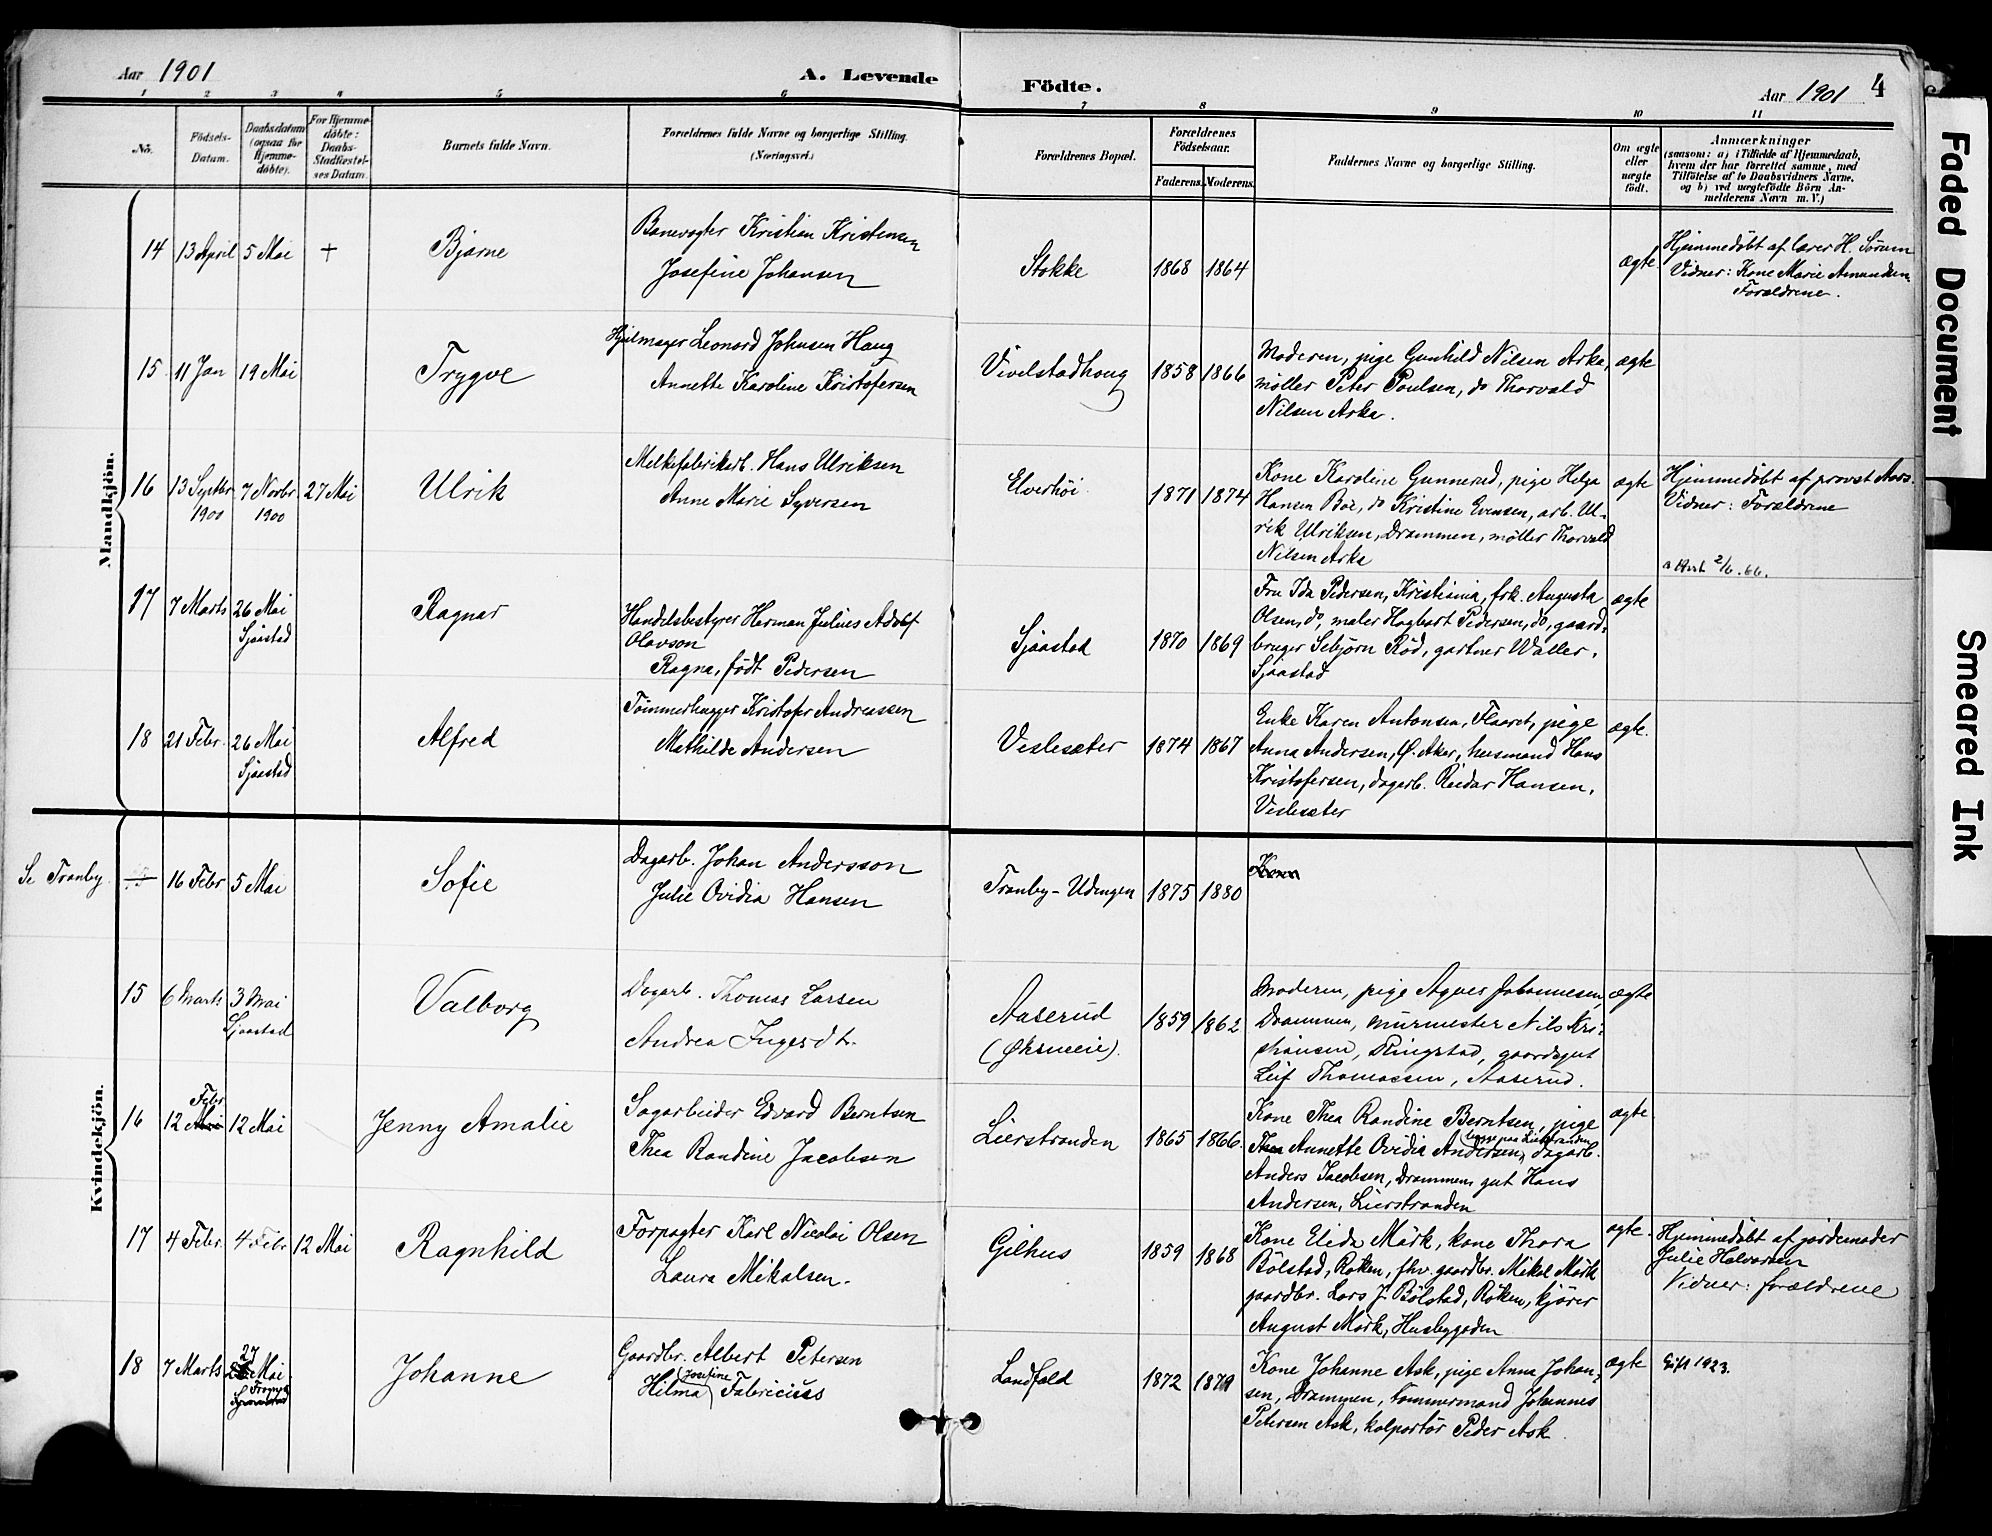 Aar 1901
A. Levende Födte.
Aar 1901
4
1 2 3 4 5 6 7 8 9 10 11
No.
Födsels-
Datum.
Daabsdatum
(ogsaa for
Hjemme-
döbte).
For Hjemme-
döbte:
Daabs-
Stadfæstel-
ses Datum.
Barnets fulde Navn.
Forældrenes fulde Navne og borgerlige Stilling.
(Næringsvei.)
Forældrenes Bopæl.
Forældrenes
Födselsaar.
Faderens. Moderens.
Faddernes Navne og borgerlige Stilling.
Om ægte
eller
uægte
födt.
Anmærkninger
(saasom: a) i Tilfælde af Hjemmedaab,
hvem der har forrettet samme, med
Tilföielse af to Daabsvidners Navne,
og b) ved uægtefödte Börn An-
melderens Navn m. V.)
Mandkjön.
14 13 April 5 Mai + Bjarne
Banevogter Kristian Kristensen
Josefine Johansen
Stokke 1868 1864
ægte.
Hjemmedöbt af lærer H. Sörum
Vidner: Kone Marie Amundsen
Forældrene.
15 11 Jan 19 Mai Trygve
Hjulmager Leonard Johnsen Haug
Annette Karoline Kristofersen
Vivelstadhaug 1858 1866
Moderen, pige Gunhild Nilsen Arka,
møller Peter Poulsen, do Thorvald
Nilsen Arka.
ægte
16 13 Septbr 1900 7 Novbr 1900 27 Mai Ulrik
Melkefabrikarb. Hans Ulriksen
Anne Marie Syversen
Elverhöi 1871 1874
Kone Karoline Gunnerud, pige Helga
Hansen Boe, do Kristine Evensen, arb. Ul-
rik Ulriksen, Drammen, møller Thorvald
Nilsen Arka
ægte
Hjemmedöbt af provst Aars.
Vidner: Forældrene
2/6.66.
17 7 Marts 26 Mai Sjaastad Ragnar
Handelsbestyrer Herman Julius Adolf
Olavson
Ragna, födt Pedersen
Sjaastad 1870 1869
Fru Ida Pedersen, Kristiania, frk. Augusta
Olsen, do, maler Hagbart Pedersen, do, gaard-
bruger Sebjørn Röd, gartner Waller,
Sjaastad
ægte
18 21 Febr. 26 Mai Sjaastad Alfred
Tömmerhugger Kristofer Andreassen
Mathilde Andersen
Veslesæter 1874 1867
Enke Karen Antonsen, Flaaret, pige
Anna Andersen, Ø. Aker, husmand Hans
Kristofersen, dagarb. Reidar Hansen,
Veslesæter
ægte.
Kvindekjön.
Se Tranby. 16 Febr 5 Mai Sofie
Dagarb. Johan Andersson
Julie Ovidia Hansen
Tranby - Udengen 1875 1880
Kone
15 6 Marts 3 Mai Sjaastad Valborg
Dagarb. Thomas Larsen
Andrea Ingerdt.
Aaserud
(Øksneie). 1859 1862
Moderen, pige Agnes Johannesen,
Drammen, murmester Nils Kri-
stiansen, Ringstad, gaardsgut
Leif Thomassen, Aaserud.
ægte
16 12 Mai Febr 12 Mai Jenny Amalie
Sagarbeider Edvard Berntsen
Thea Randine Jacobsen
Lierstranden 1865 1866.
Kone Thea Randine Berntsen, pige
Thea Annette Ovidia Andersen, dagarb.
Anders Jacobsen, Drammen, gut Hans
Andersen, Lierstranden
ægte
17 4 Febr. 4 Febr 12 Mai Ragnhild
Forpagter Karl Nicolai Olsen
Laura Mikalsen.
Gilhus 1859 1868
Kone Elida Mörk, kone Thora
Bölstad, Röken, fhv. gaardbr. Mikal Mörk
gaardbr. Lars J. Bölstad, Röken, kjörer
August Mörk, Husbygaden
ægte.
Hjemmedöbt af jordemoder
Julie Halvorsen
Vidner: forældrene
18 7 Marts 27 Mai Johanne
Gaardbr. Albert Petersen
Hilma (Josefine) Fabricius
Landfald 1872 1879
Kone Johanne Ask, pige Anna Johan-
sen, Drammen, tömmermand Johannes
Petersen Ask, kolportör Peder Ask.
ægte
Gift 1923.
Faded Document
Smeared Ink